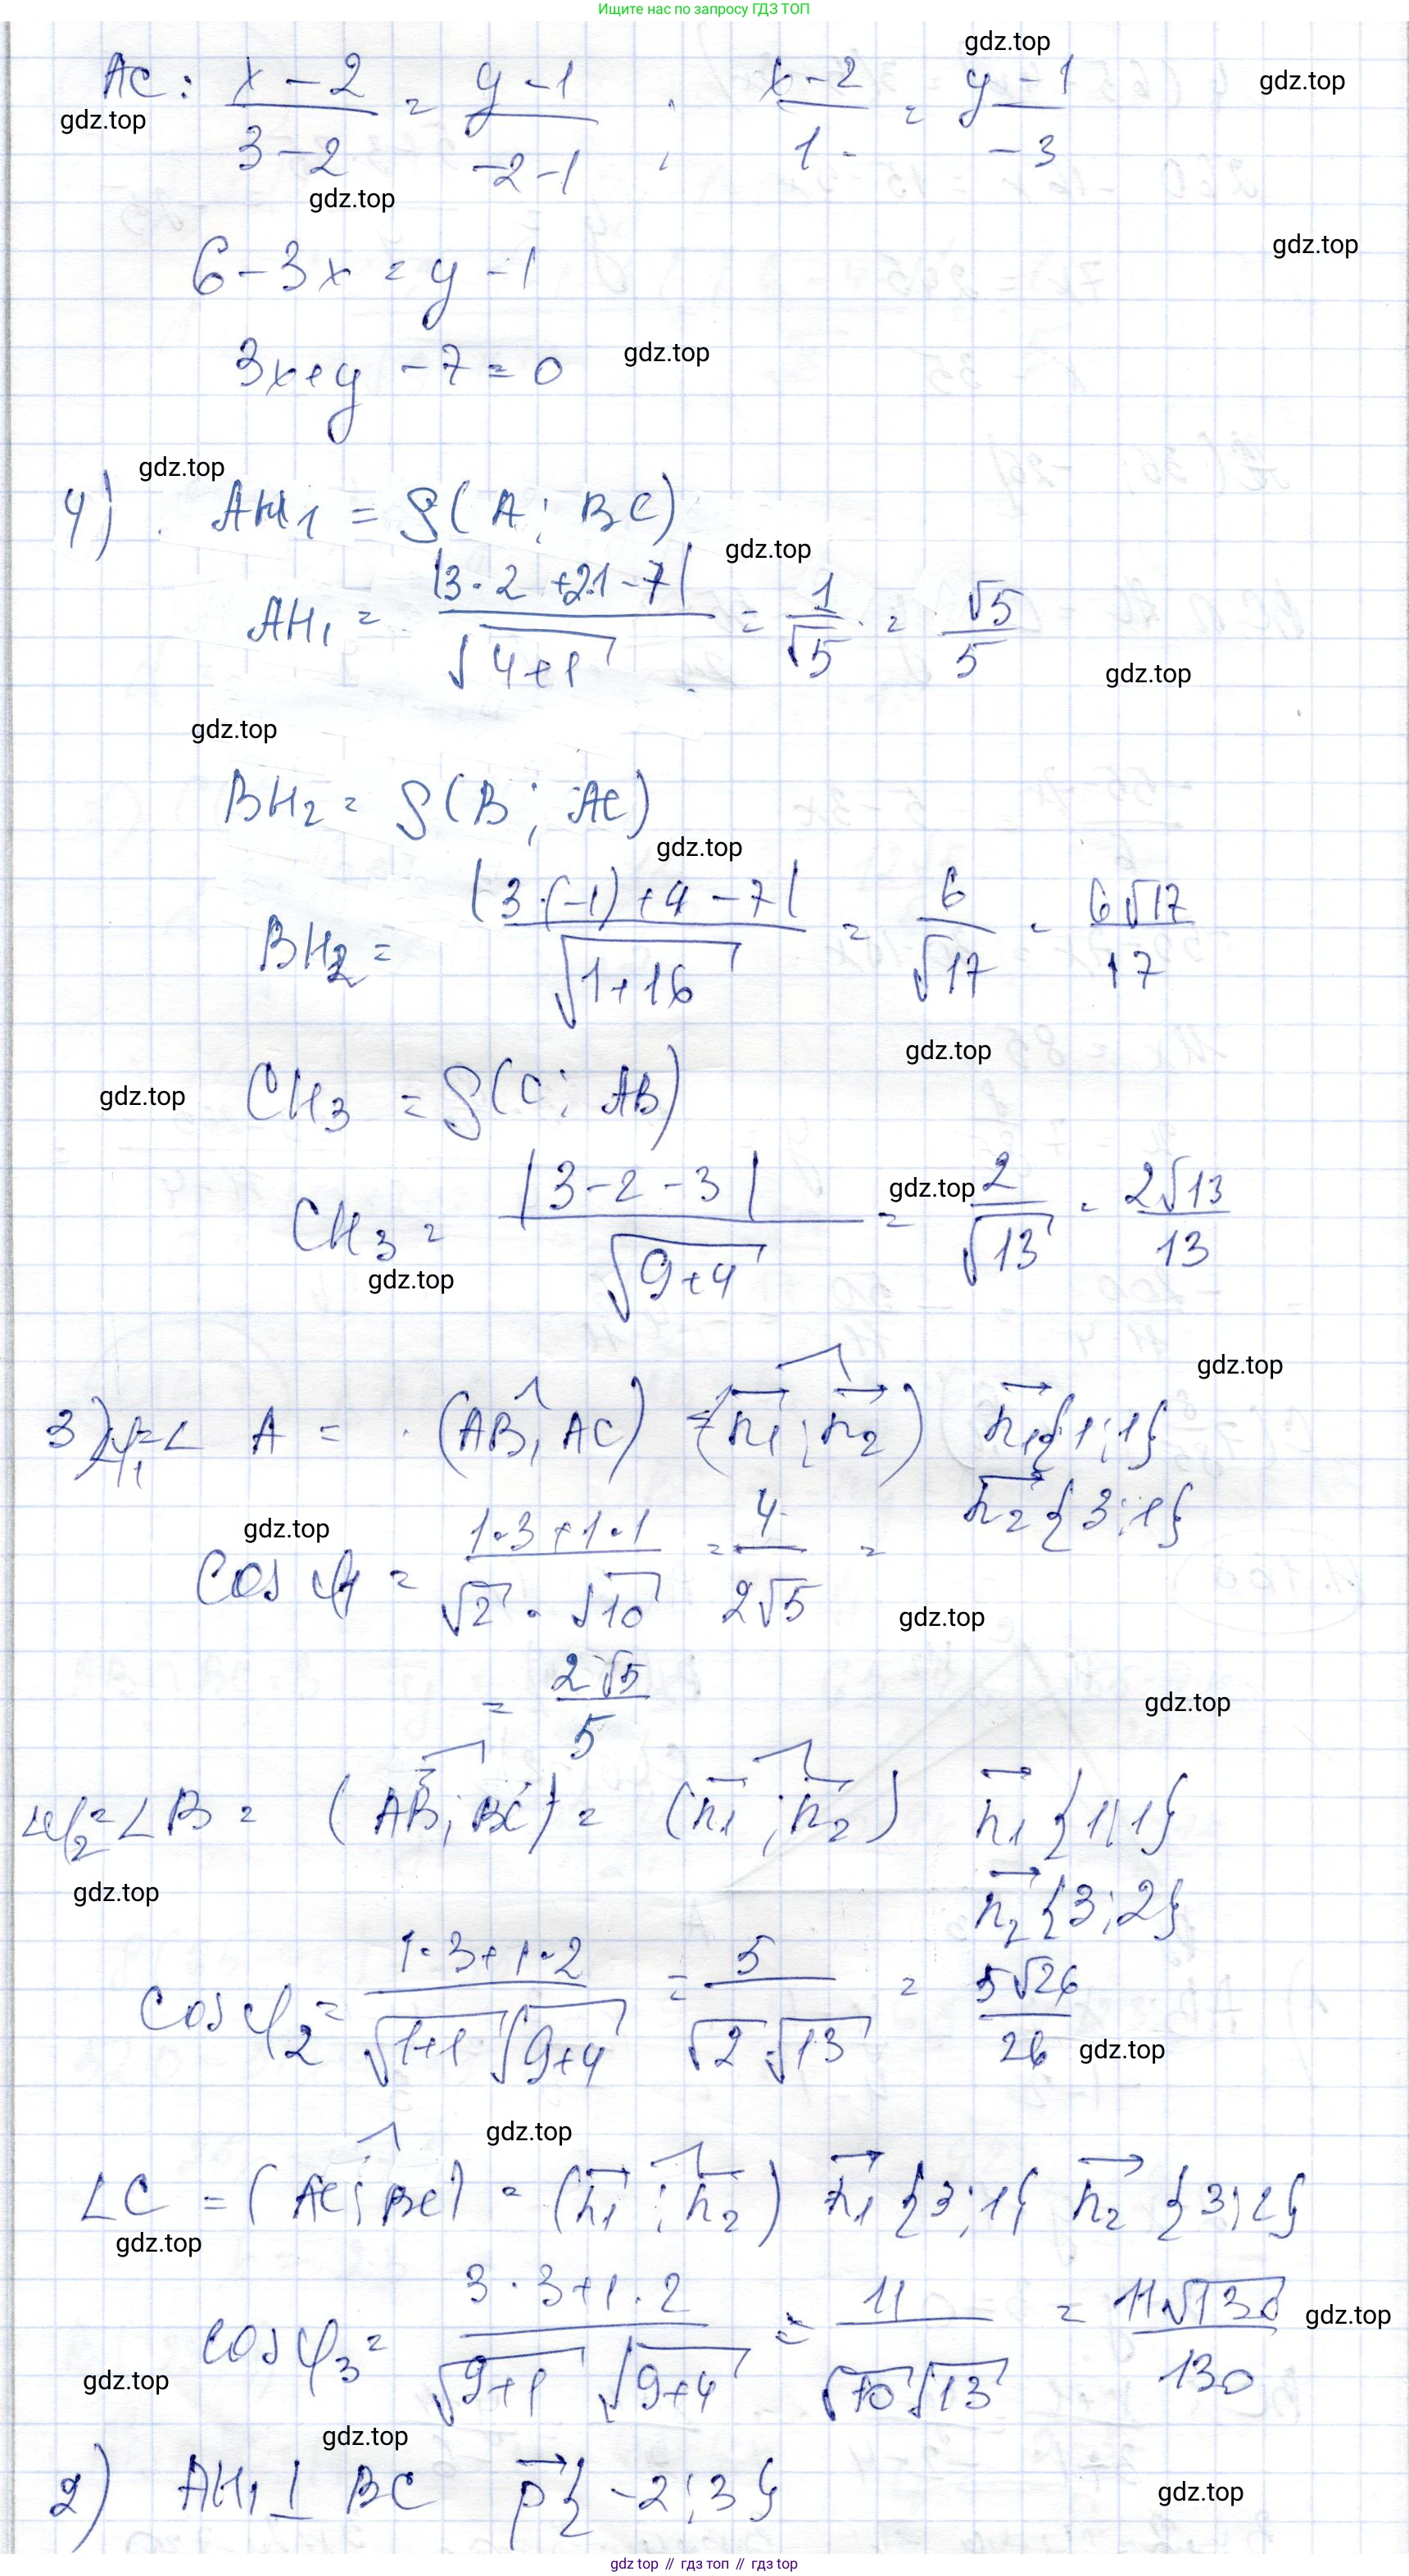 Ищите нас по запросу ГДЗ ТОП
AC: (x − 2)/(3 − 2) = (y − 1)/(−2 − 1) ; (x − 2)/1 = (y − 1)/−3
gdz.top gdz.top gdz.top
gdz.top
6 − 3x = y − 1 gdz.top
3x + y − 7 = 0 gdz.top
gdz.top
4) AH₁ = ρ(A; BC)
gdz.top
AH₁ = |3·2 + 2·1 − 7|/√(4+1) = 1/√5 = √5/5
gdz.top
gdz.top
BH₂ = ρ(B; AC)
gdz.top
BH₂ = |3·(−1) + 4 − 7|/√(1+16) = 6/√17 = 6√17/17
gdz.top
gdz.top CH₃ = ρ(C; AB)
CH₃ = |3 − 2 − 3|/√(9+4) = 2/√13 = 2√13/13
gdz.top
gdz.top
gdz.top
3) φ₁ = ∠ A = (AB, AC) = (n₁; n₂) n₁{1; 1}
n₂{3; 1}
gdz.top
cos φ₁ = (1·3 + 1·1)/(√2 · √10) = 4/(2√5) =
gdz.top
= 2√5/5
gdz.top
φ₂ = ∠B = (AB; BC) = (n₁; n₂) n₁{1; 1}
gdz.top
n₂{3; 2}
cos φ₂ = (1·3 + 1·2)/(√(1+1) √(9+4)) = 5/(√2 √13) = 5√26/26
gdz.top
gdz.top
∠C = (AC; BC) = (n₁; n₂) n₁{3; 1} n₂{3; 2}
gdz.top
cos φ₃ = (3·3 + 1·2)/(√(9+1) √(9+4)) = 11/(√10 √13) = 11√130/130
gdz.top
gdz.top
gdz.top
2) AH₁ ⊥ BC p{−2; 3}
gdz.top
gdz top // гдз топ // gdz top